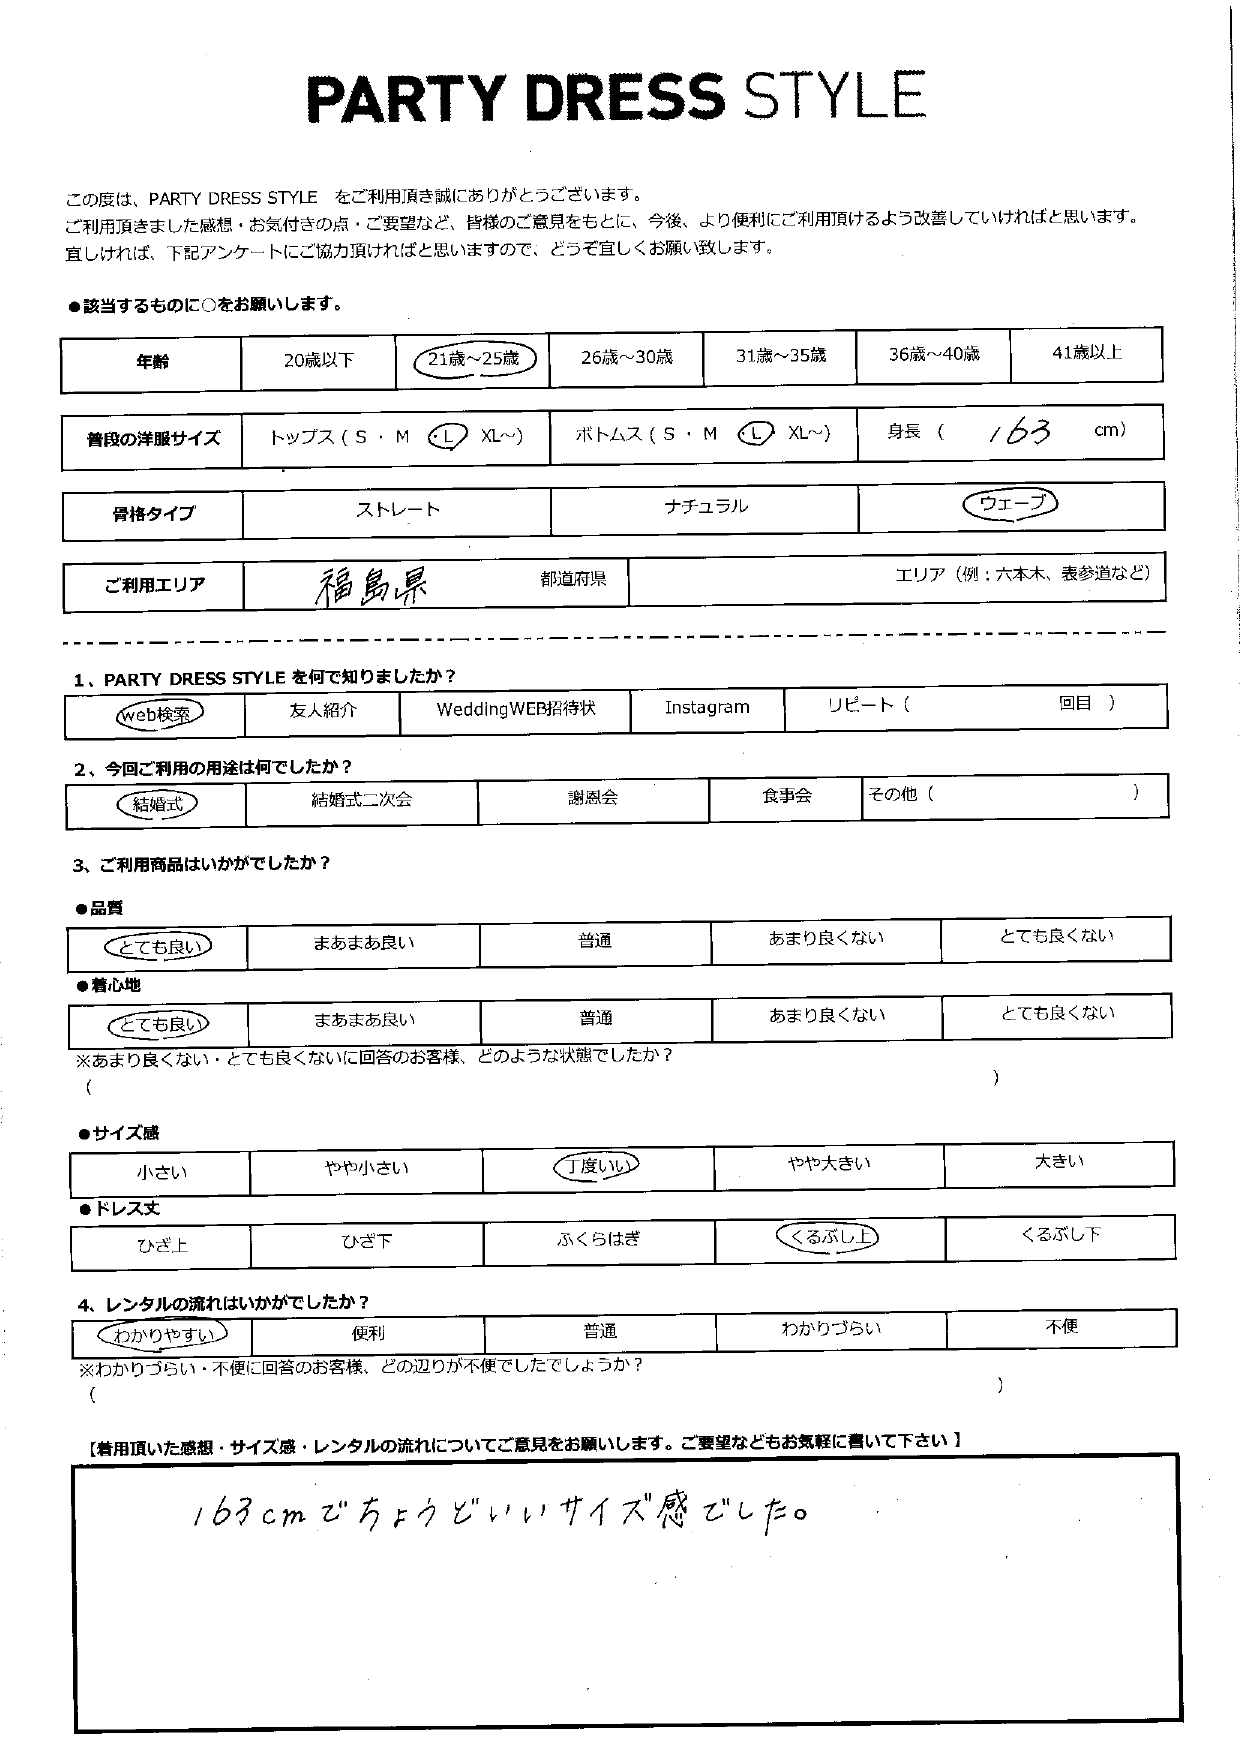 PARTY DRESS STYLE
この度は、PARTY DRESS STYLE をご利用頂き誠にありがとうございます。
ご利用頂きました感想・お気付きの点・ご要望など、皆様のご意見をもとに、今後、より便利にご利用頂けるよう改善していければと思います。
宜しければ、下記アンケートにご協力頂ければと思いますので、どうぞ宜しくお願い致します。
●該当するものに○をお願いします。
年齢 20歳以下 21歳～25歳 26歳～30歳 31歳～35歳 36歳～40歳 41歳以上
普段の洋服サイズ トップス ( S ・ M ・L XL～) ボトムス ( S ・ M ・L XL～) 身長 ( 163 cm)
骨格タイプ ストレート ナチュラル ウェーブ
ご利用エリア 福島県 都道府県 エリア（例：六本木、表参道など）
1、PARTY DRESS STYLE を何で知りましたか？
web検索 友人紹介 WeddingWEB招待状 Instagram リピート ( 回目 )
2、今回ご利用の用途は何でしたか？
結婚式 結婚式二次会 謝恩会 食事会 その他 ( )
3、ご利用商品はいかがでしたか？
●品質
とても良い まあまあ良い 普通 あまり良くない とても良くない
●着心地
とても良い まあまあ良い 普通 あまり良くない とても良くない
※あまり良くない・とても良くないに回答のお客様、どのような状態でしたか？
( )
●サイズ感
小さい やや小さい 丁度いい やや大きい 大きい
●ドレス丈
ひざ上 ひざ下 ふくらはぎ くるぶし上 くるぶし下
4、レンタルの流れはいかがでしたか？
わかりやすい 便利 普通 わかりづらい 不便
※わかりづらい・不便に回答のお客様、どの辺りが不便でしたでしょうか？
( )
【着用頂いた感想・サイズ感・レンタルの流れについてご意見をお願いします。ご要望などもお気軽に書いて下さい】
163cmでちょうどいいサイズ感でした。